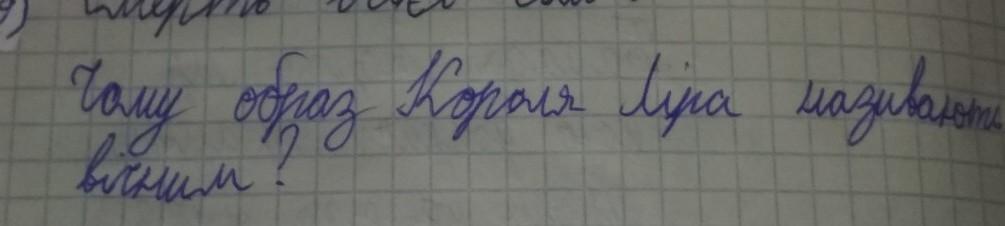 Чому образ Короля Ліра називають
вічним?